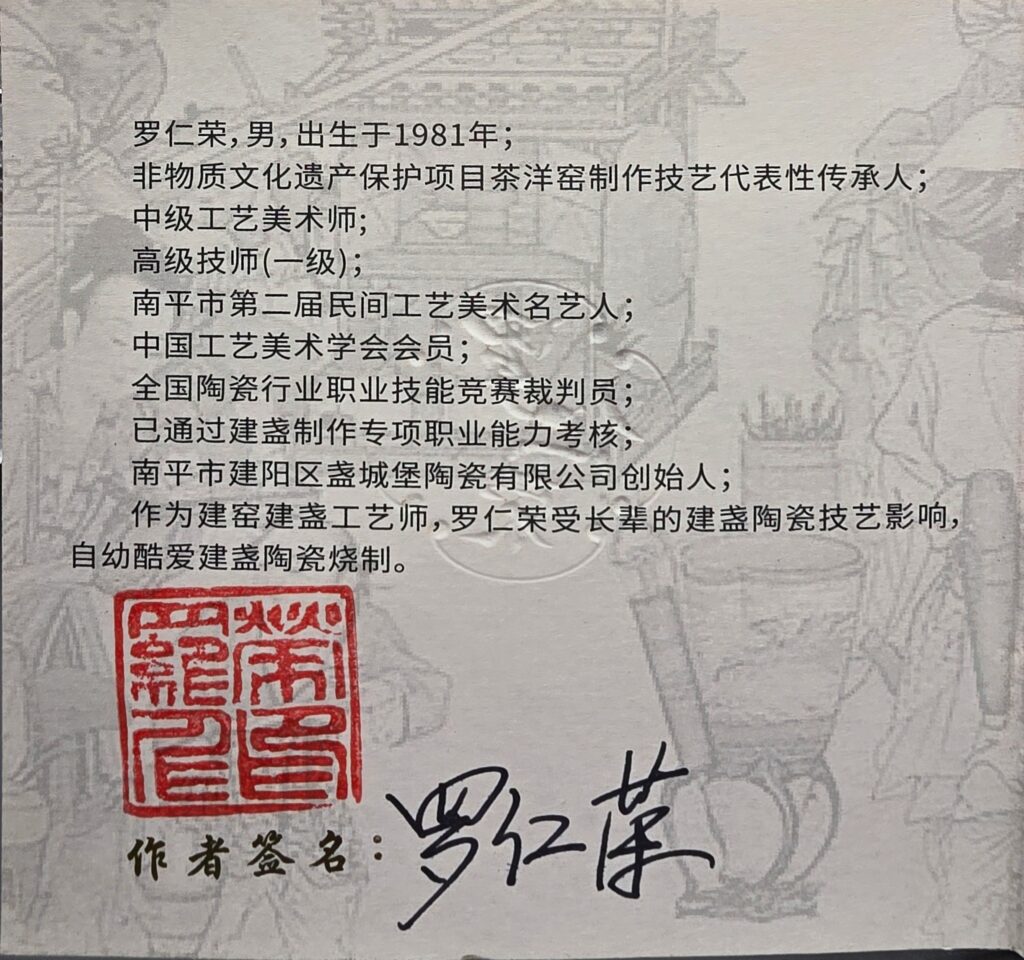 罗仁荣，男，出生于1981年；
非物质文化遗产保护项目茶洋窑制作技艺代表性传承人；
中级工艺美术师；
高级技师(一级)；
南平市第二届民间工艺美术名艺人；
中国工艺美术学会会员；
全国陶瓷行业职业技能竞赛裁判员；
已通过建盏制作专项职业能力考核；
南平市建阳区盏城堡陶瓷有限公司创始人；
作为建窑建盏工艺师，罗仁荣受长辈的建盏陶瓷技艺影响，
自幼酷爱建盏陶瓷烧制。
羅仁榮印
作者签名：罗仁荣